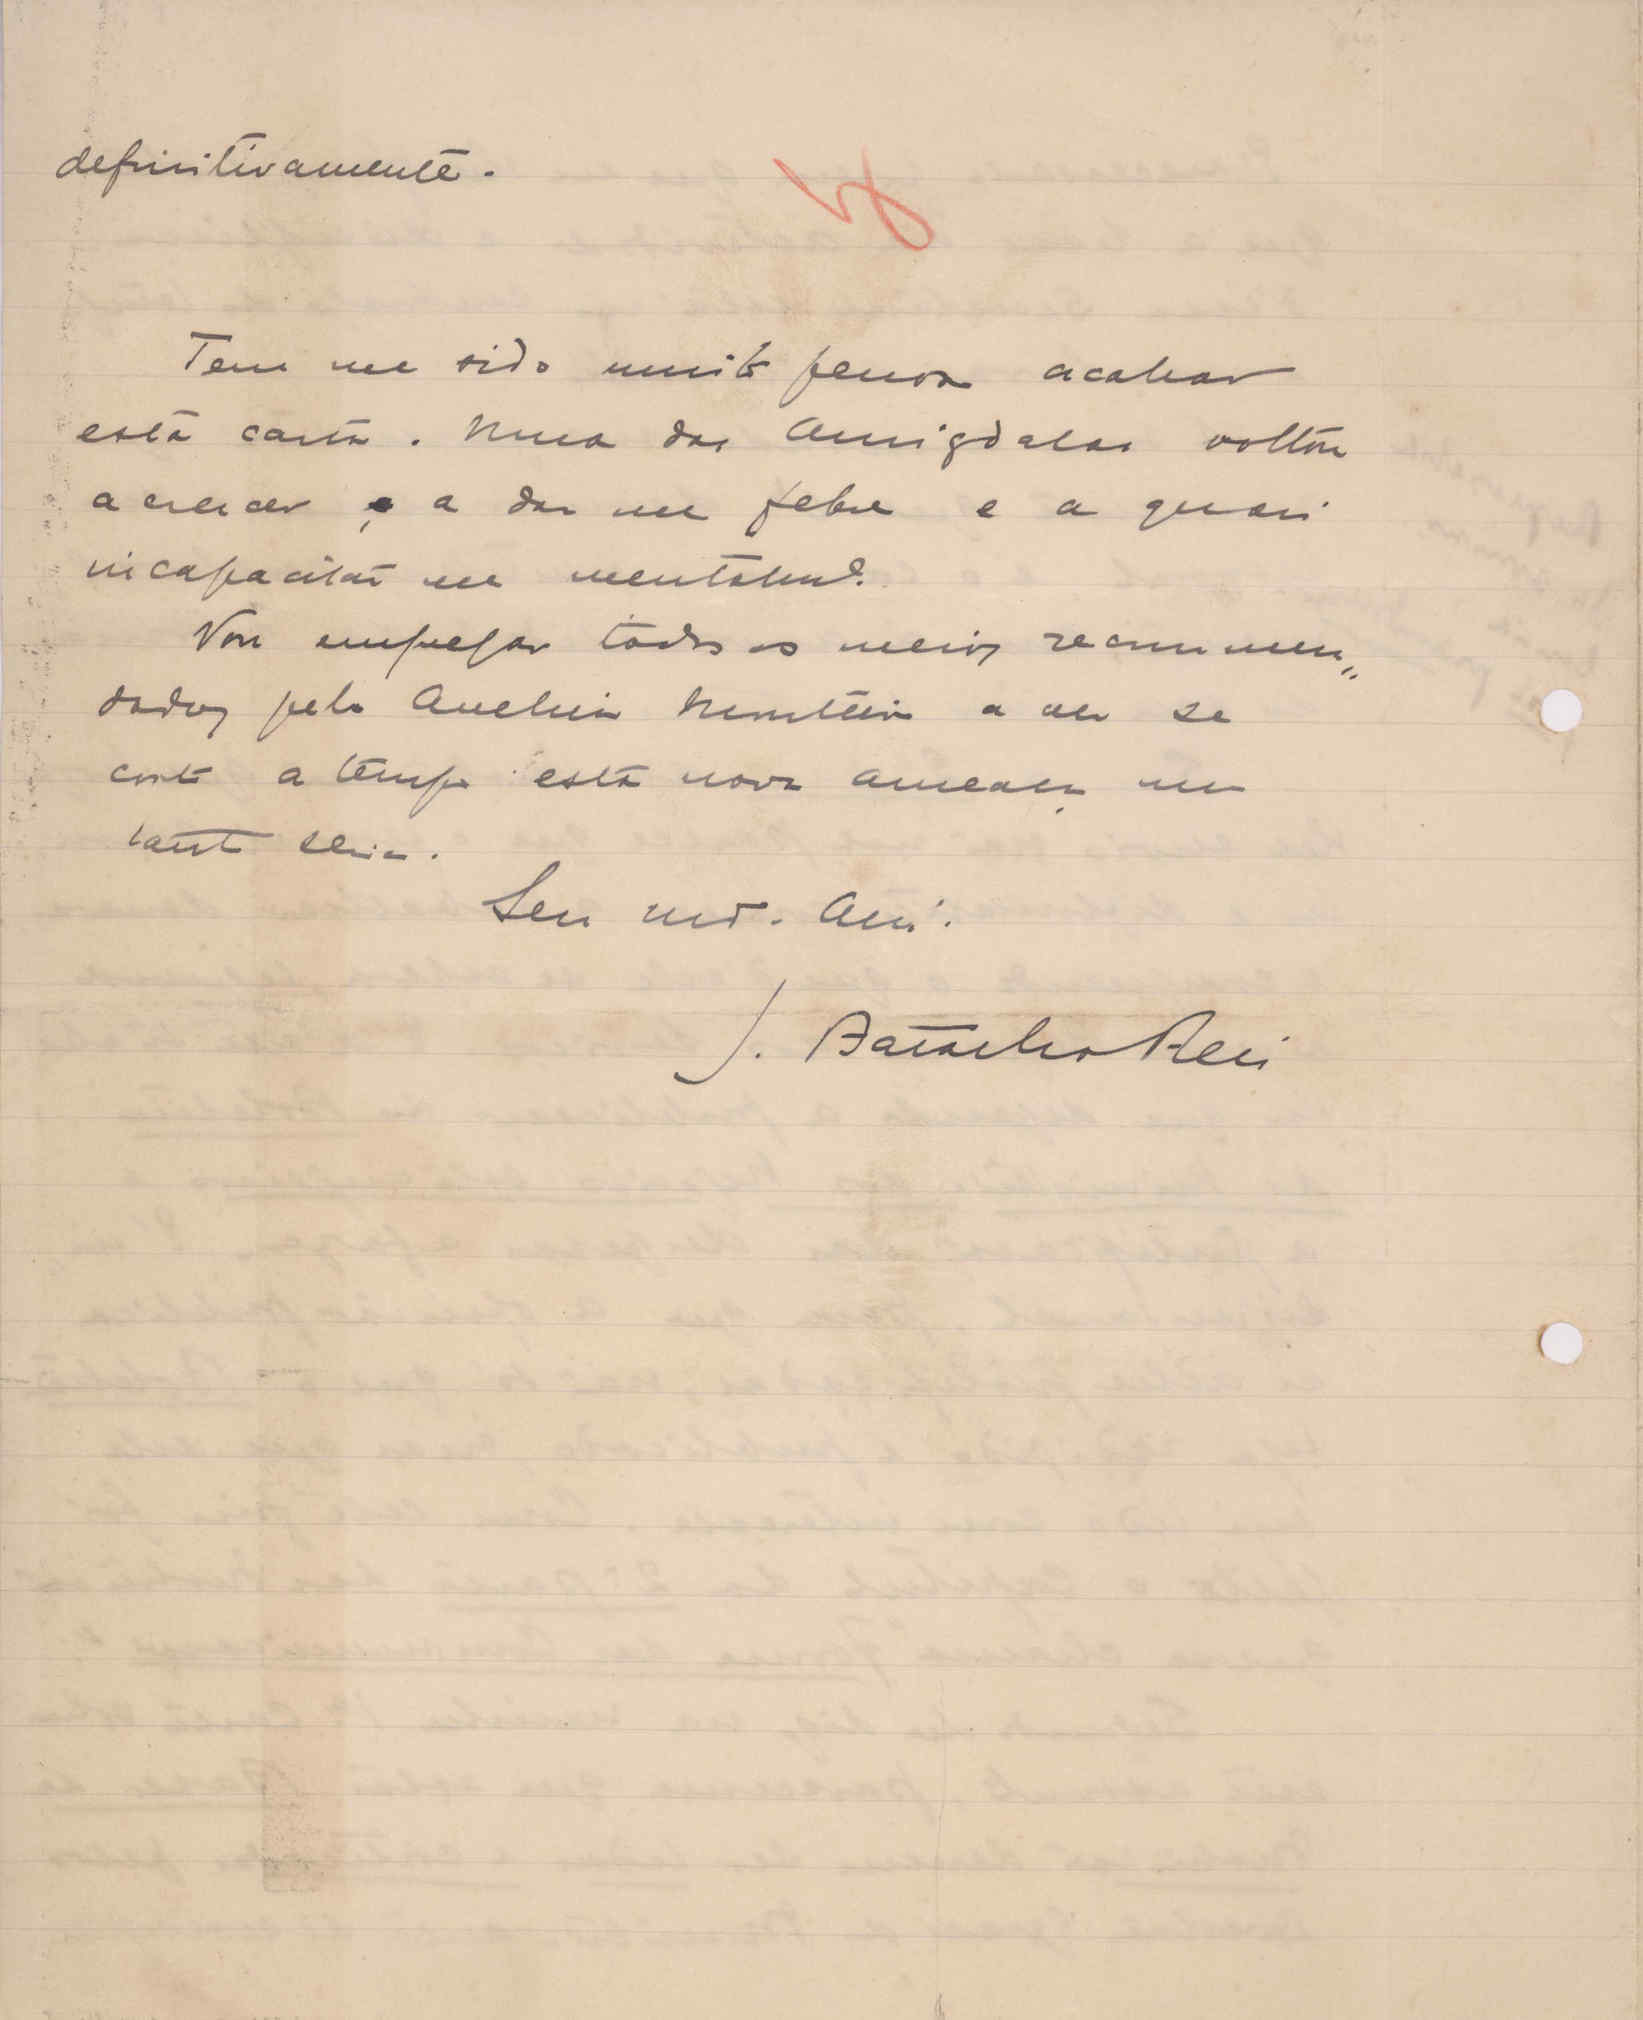 definitivamente.
Tem me sido muito penoso acabar
esta carta. Uma das Amigdalas voltou
a crescer e a dar me febre e a quasi
incapacitar me mentalmte.
Vou empregar todos os meios recommen„
dados pelo Monteiro a ver se
corto a tempo esta nova ameaça um
tanto séria.
Seu mto. Ami.
J. Batalha Reis